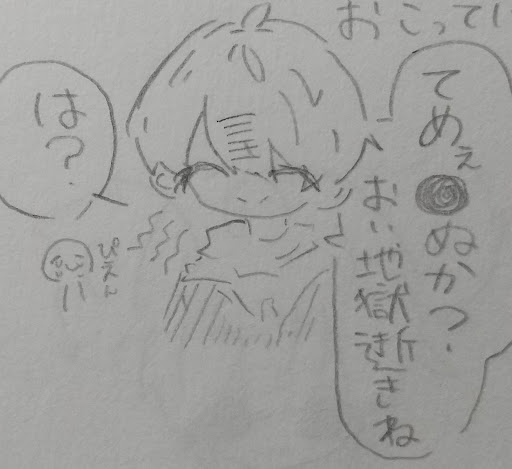 おこってい
てめぇ●ぬか?
おい地獄逝きね
は?
ぴえん